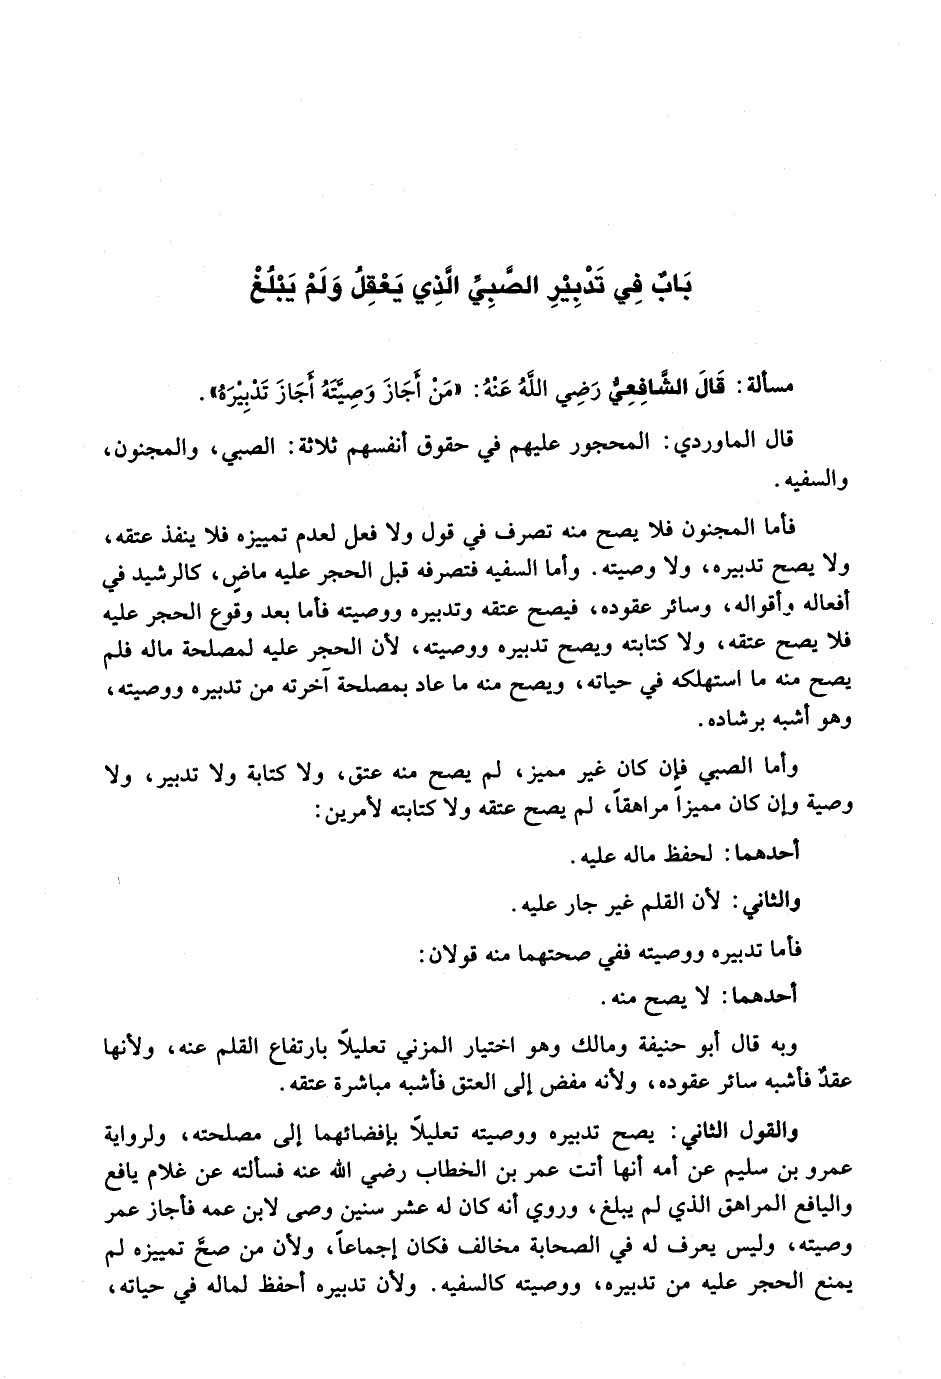 بَابٌ فِي تَدْبِيْرِ الصَّبِيِّ الَّذِي يَعْقِلُ وَلَمْ يَبْلُغْ
مسألة: قَالَ الشَّافِعِيُّ رَضِي اللَّهُ عَنْهُ: «مَنْ أَجَازَ وَصِيَّتَهُ أَجَازَ تَدْبِيْرَهُ».
قال الماوردي: المحجور عليهم في حقوق أنفسهم ثلاثة: الصبي، والمجنون،
والسفيه.
فأما المجنون فلا يصح منه تصرف في قول ولا فعل لعدم تمييزه فلا ينفذ عتقه،
ولا يصح تدبيره، ولا وصيته. وأما السفيه فتصرفه قبل الحجر عليه ماضٍ، كالرشيد في
أفعاله وأقواله، وسائر عقوده، فيصح عتقه وتدبيره ووصيته فأما بعد وقوع الحجر عليه
فلا يصح عتقه، ولا كتابته ويصح تدبيره ووصيته، لأن الحجر عليه لمصلحة ماله فلم
يصح منه ما استهلكه في حياته، ويصح منه ما عاد بمصلحة آخرته من تدبيره ووصيته،
وهو أشبه برشاده.
وأما الصبي فإن كان غير مميز، لم يصح منه عتق، ولا كتابة ولا تدبير، ولا
وصية وإن كان مميزاً مراهقاً، لم يصح عتقه ولا كتابته لأمرين:
أحدهما: لحفظ ماله عليه.
والثاني: لأن القلم غير جار عليه.
فأما تدبيره ووصيته ففي صحتهما منه قولان:
أحدهما: لا يصح منه.
وبه قال أبو حنيفة ومالك وهو اختيار المزني تعليلاً بارتفاع القلم عنه، ولأنها
عقدٌ فأشبه سائر عقوده، ولأنه مفض إلى العتق فأشبه مباشرة عتقه.
والقول الثاني: يصح تدبيره ووصيته تعليلاً بإفضائهما إلى مصلحته، ولرواية
عمرو بن سليم عن أمه أنها أتت عمر بن الخطاب رضي الله عنه فسألته عن غلام يافع
واليافع المراهق الذي لم يبلغ، وروي أنه كان له عشر سنين وصى لابن عمه فأجاز عمر
وصيته، وليس يعرف له في الصحابة مخالف فكان إجماعاً، ولأن من صحَّ تمييزه لم
يمنع الحجر عليه من تدبيره، ووصيته كالسفيه. ولأن تدبيره أحفظ لماله في حياته،